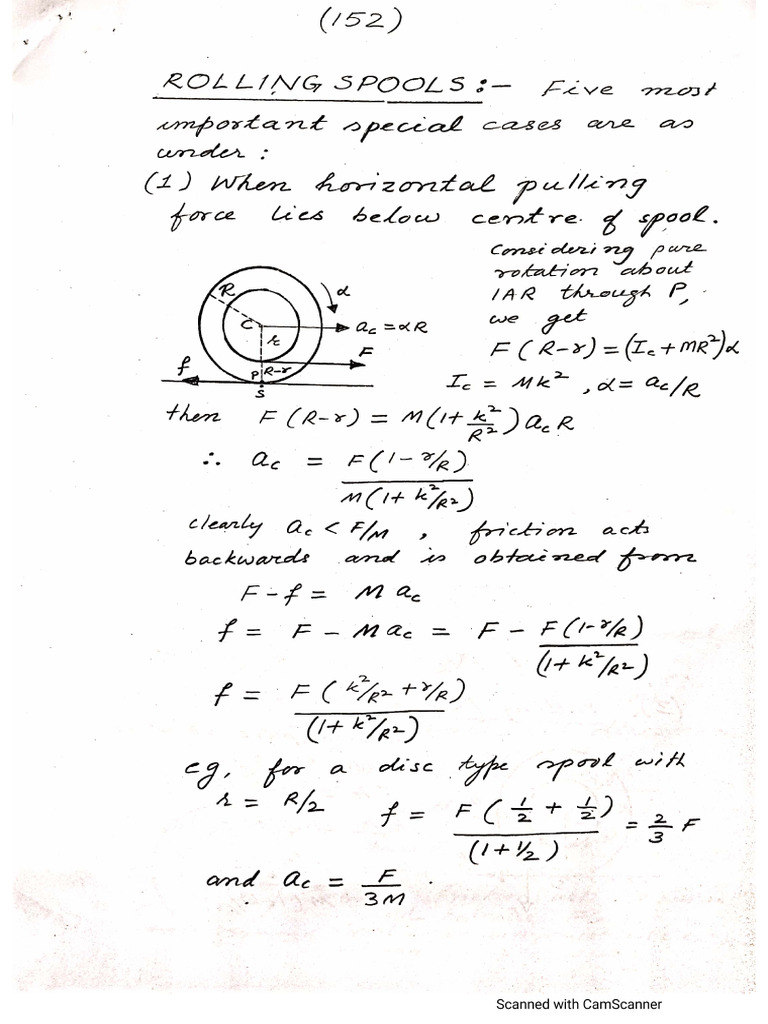 (152)
ROLLING SPOOLS :- Five most
important special cases are as
under :
(1) When horizontal pulling
force lies below centre of spool.
Considering pure
rotation about
IAR through P,
we get
F (R-r) = (Ic + MR²)α
Ic = Mk² , α = ac/R
R
α
C
ac = αR
r
F
f
P
R-r
S
then F (R-r) = M(1+ k²/R²) ac R
∴ ac = F(1-r/R) / M(1+ k²/R²)
clearly ac < F/M , friction acts
backwards and is obtained from
F-f = M ac
f = F - Mac = F - F(1-r/R) / (1+ k²/R²)
f = F ( k²/R² + r/R) / (1+ k²/R²)
eg, for a disc type spool with
r = R/2 f = F ( 1/2 + 1/2 ) / (1+1/2) = 2/3 F
and ac = F/3M .
Scanned with CamScanner